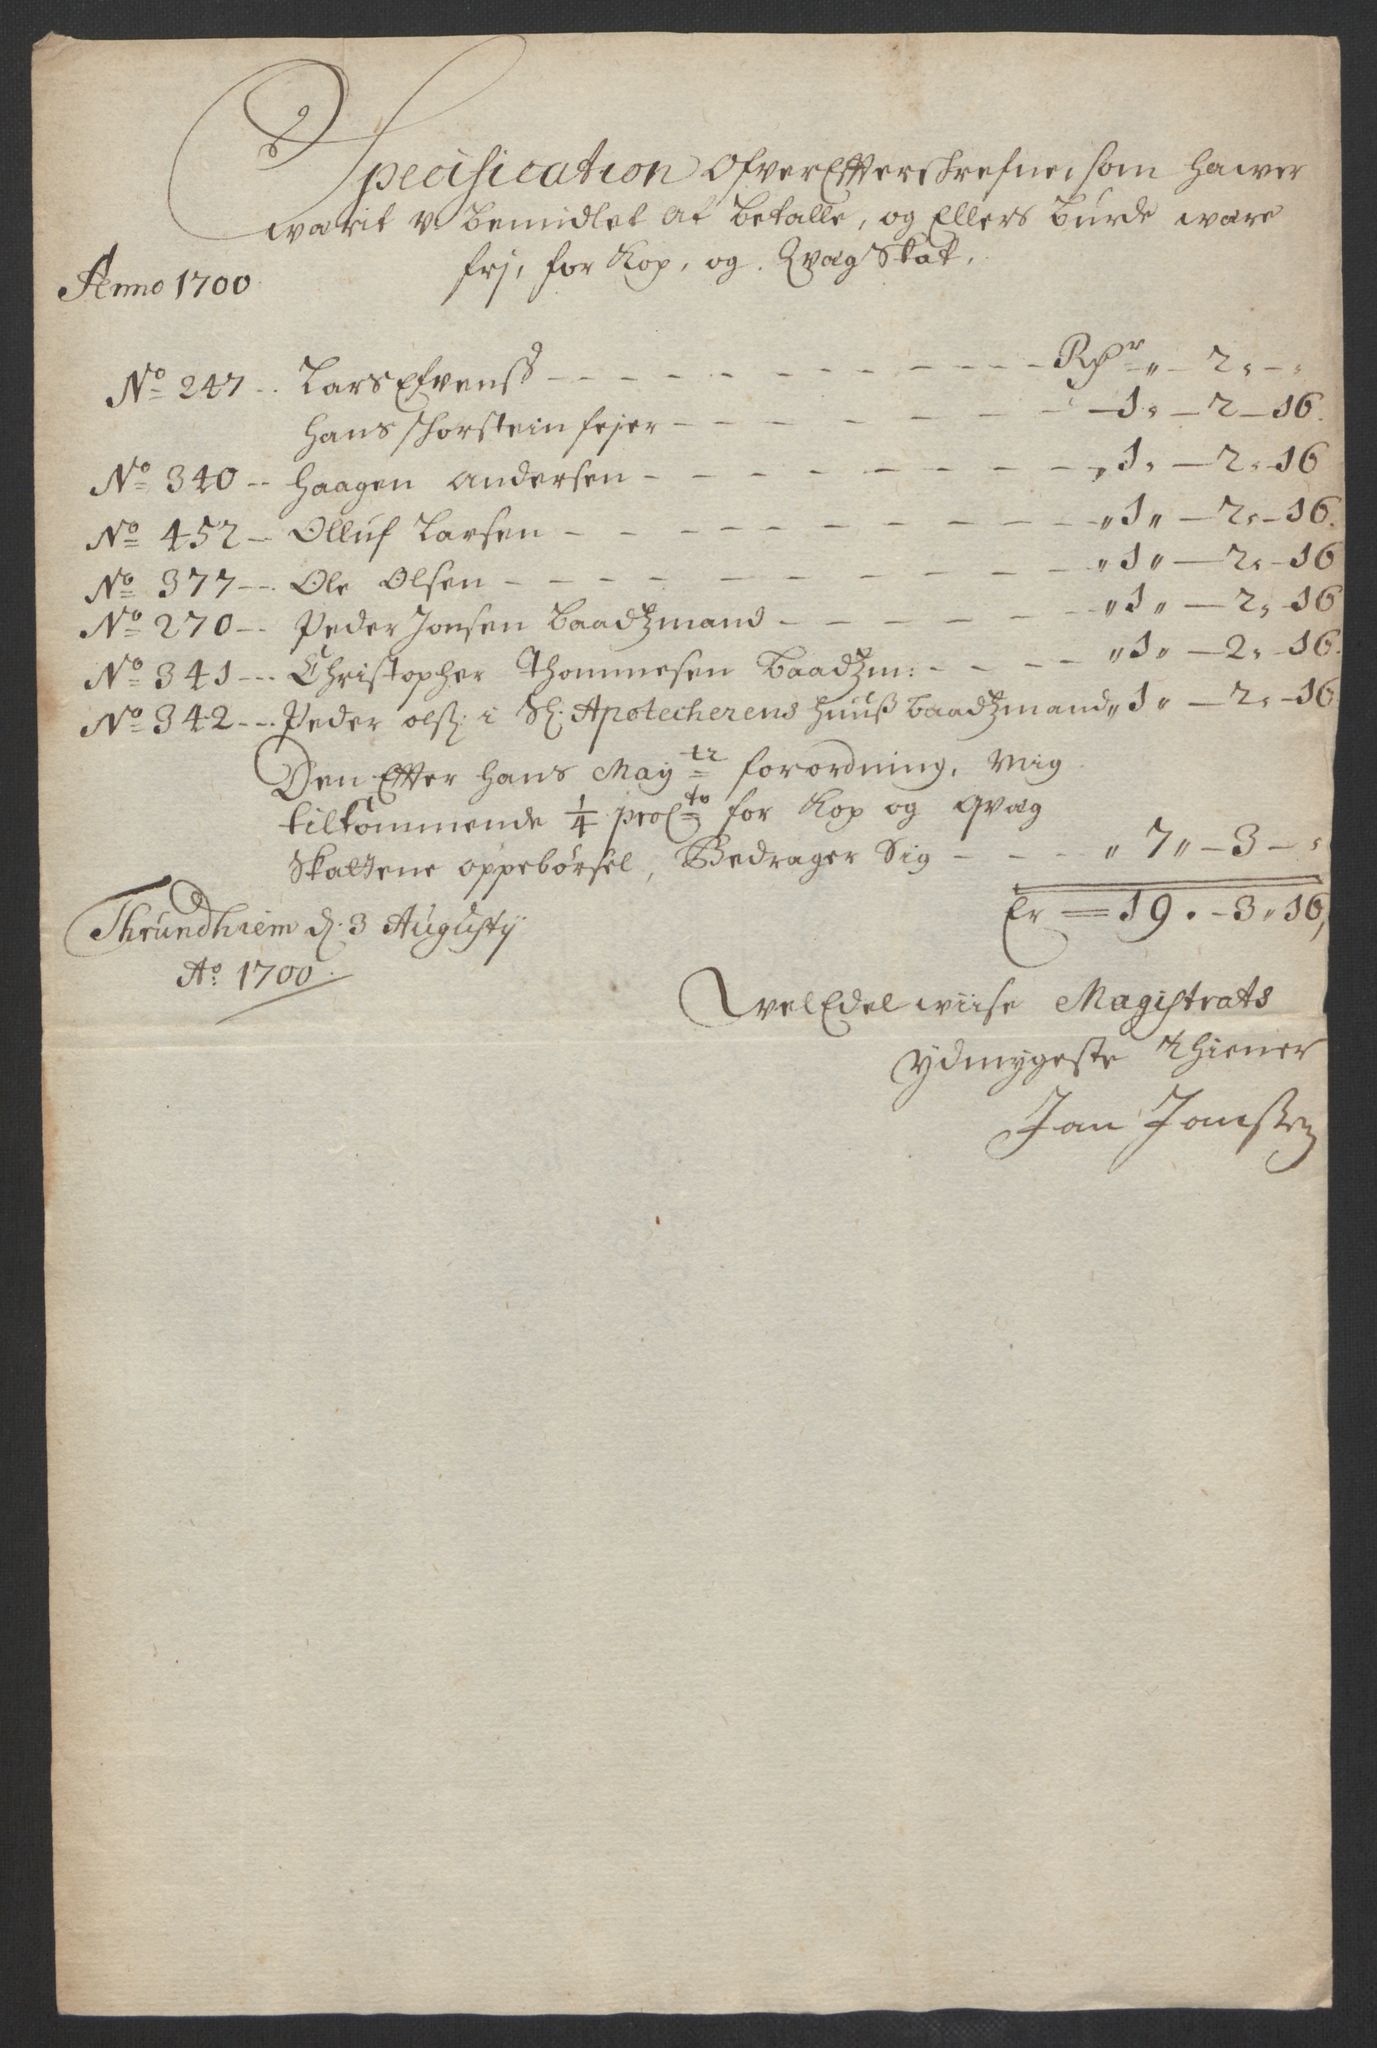 Specification Ofver Effterschrefne, som hawer
warit v bemidlet at betalle, og Ellers burde ware
frj, for Kop, og Qvæg Skat,
Anno 1700
No 247 -- Lars Efvens - - - - - - - - - - - - Rdr „ - 2 „ - „
Hans schorstein fejer - - - - - - - - 1 „ - 2 - 16
No 340 -- Haagen Andersen - - - - - - - - „ 1 „ - 2 „ - 16
No 452 -- Olluf Larsen - - - - - - - - - „ 1 „ - 2 „ - 16
No 377 -- Ole Olsen - - - - - - - - - - „ 1 „ - 2 „ - 16
No 270 -- Peder Jonsen Baadtzmand - - - - - - „ 1 „ - 2 „ - 16
No 341 -- Christopher Thommesen Baadtzm: - - - - „ 1 „ - 2 „ - 16
No 342 -- Peder ols: i Sl: Apotecherens Huuß baadtzmand „ 1 „ - 2 „ - 16
Den Effter Hans Maytz forordning, Mig
tilkommende 1/4 pro Cto for Kop og Qvæg
Skattene oppebørsel, Bedrager Sig - - - - „ 7 „ - 3 - „
Er = 19 „ - 3 „ 16
Thrundhiem d. 3 Augustij
Ao 1700
WelEdel wiise Magistrats
ydmygeste Thiener
Jan Janssen